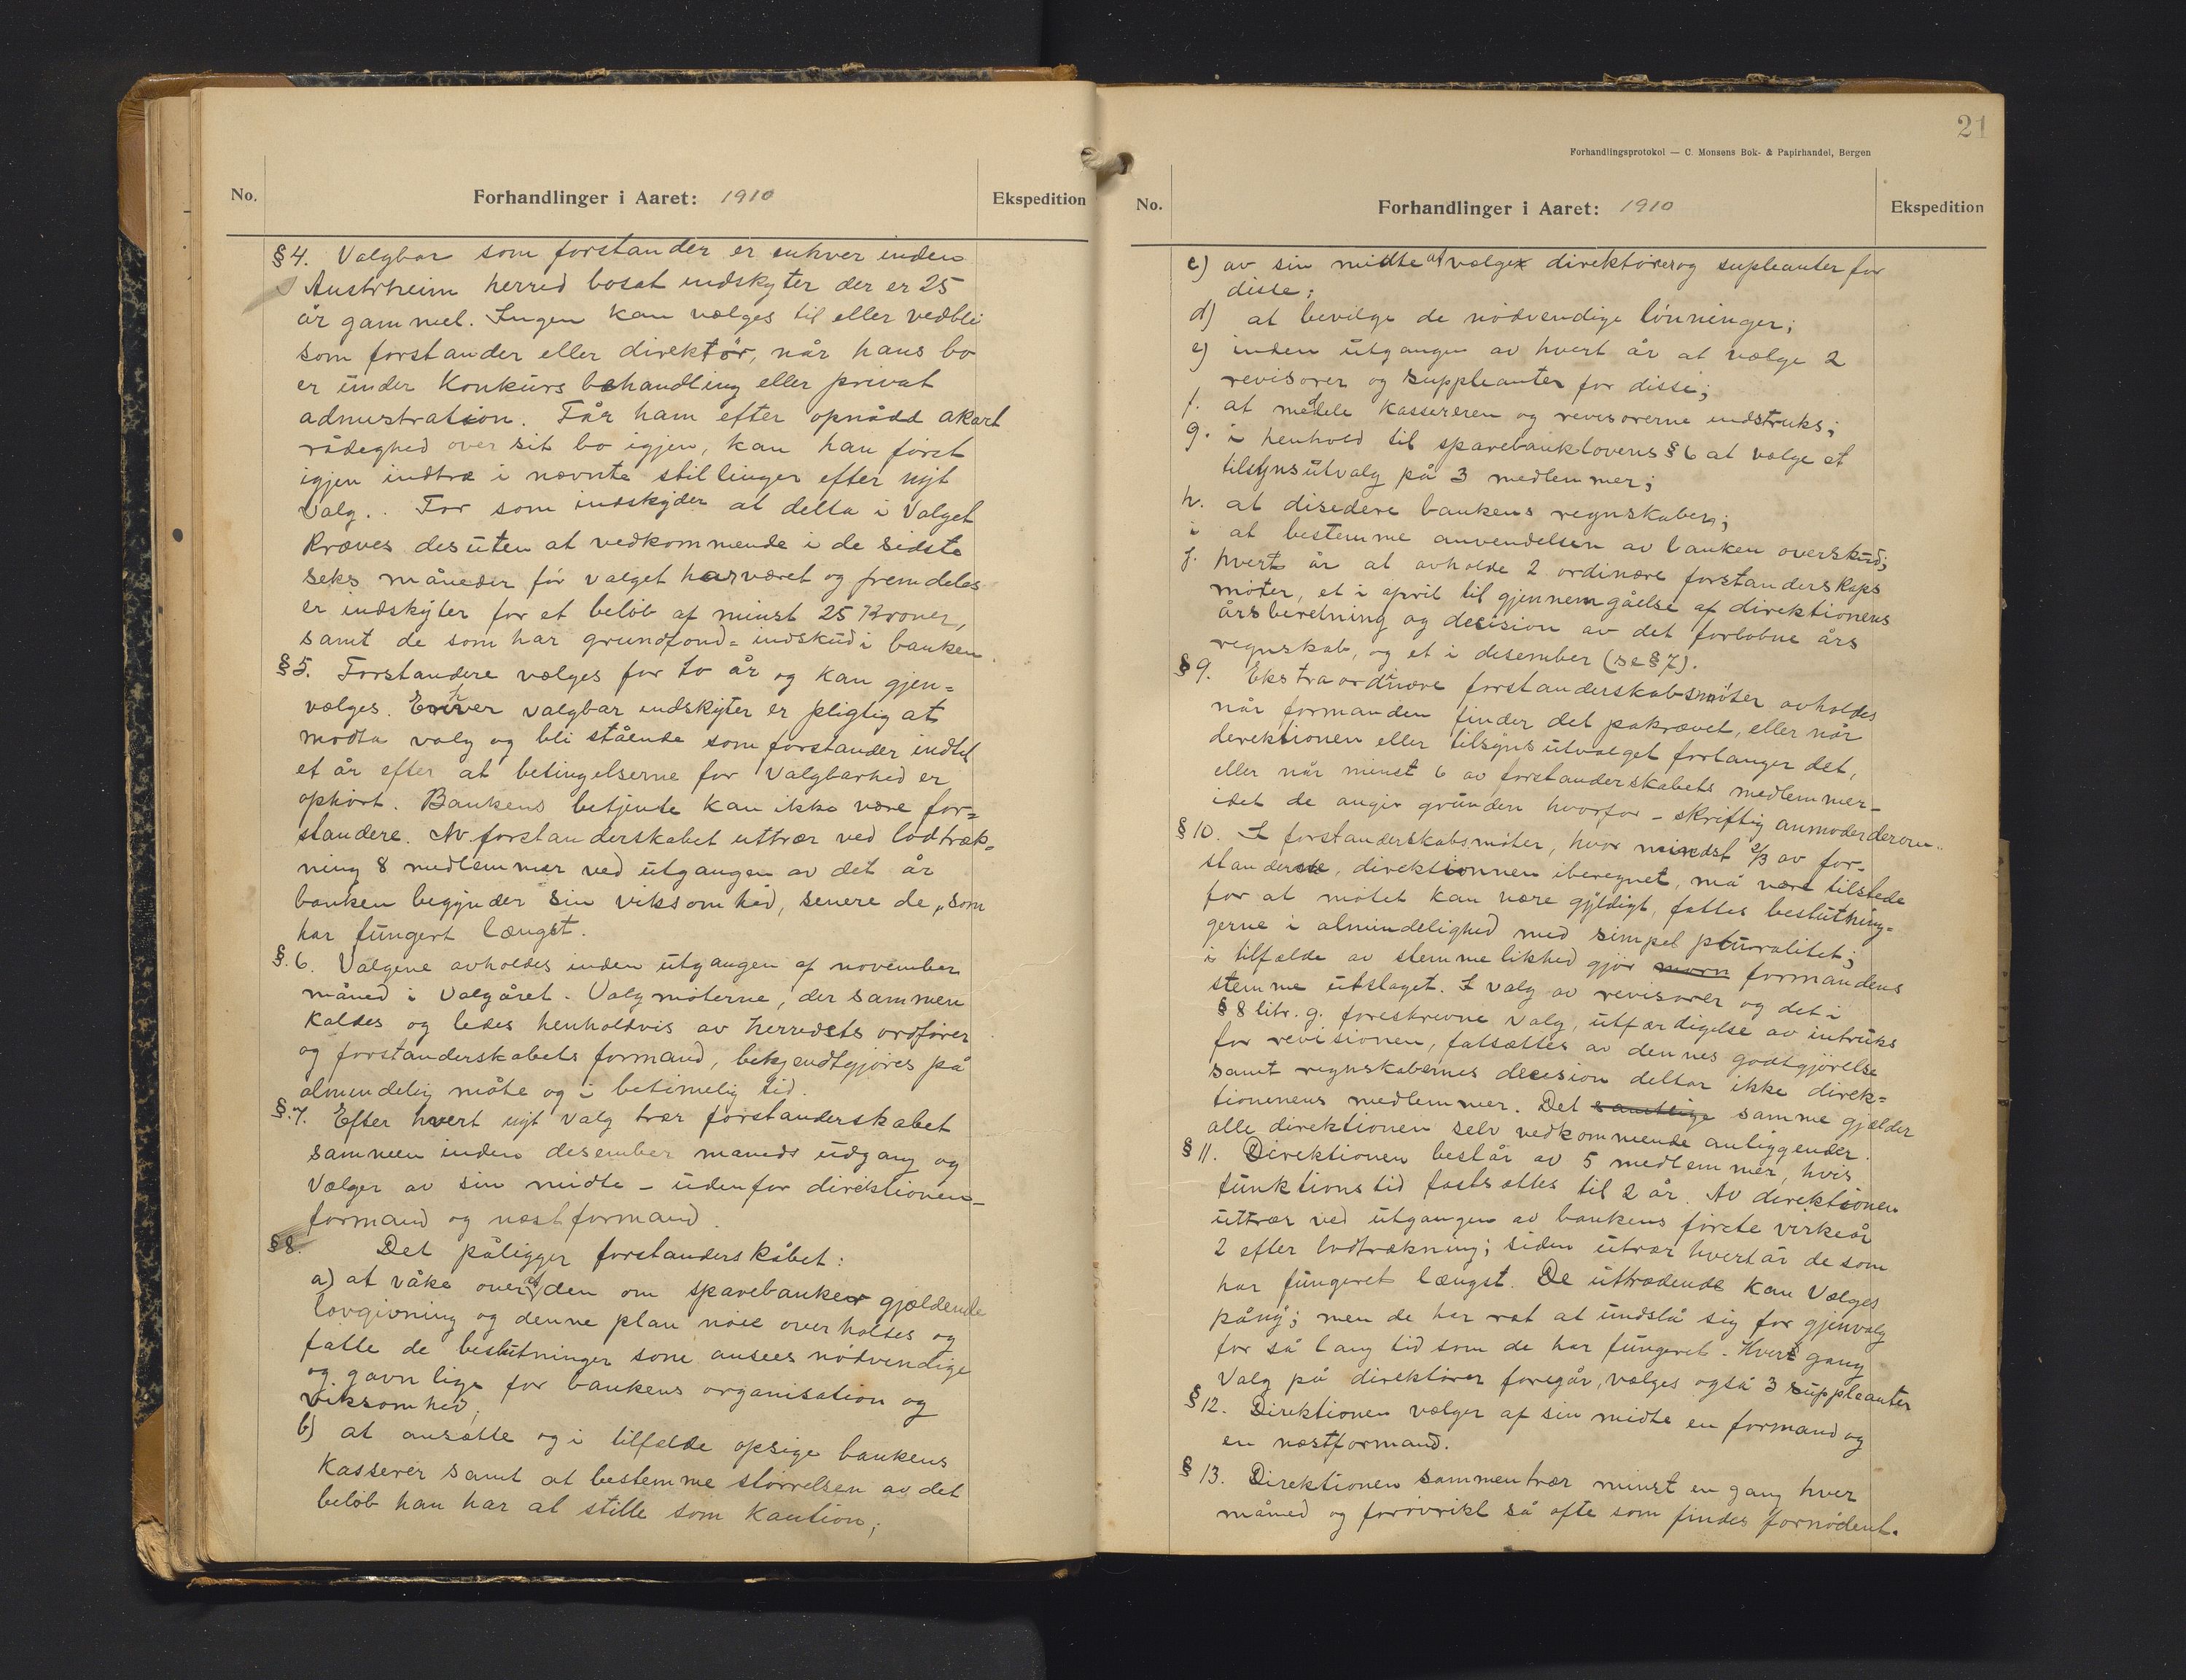 No.
Forhandlinger i Aaret: 1910
Ekspedition
§4. Valgbar som forstander er enhver inden
Austrheim herred bosat indskyter der er 25
år gammel. Ingen kan vælges til eller vedbli
som forstander eller direktør, når hans bo
er under Konkurs behandling eller privat
admistration. Får ham efter opnådd akart
rådeghed over sit bo igjen, kan han først
igjen indtræ i nævnte stillinger efter nyt
valg. For som indskyder at delta i Valget
kræves desuten at vedkommende i de sidste
seks måneder før valget har været og fremdeles
er indskyter for et beløb af minst 25 Kroner,
samt de som har grundfond=indskud i banken.
§5. Forstandere vælges for to år og kan gjen=
vælges. Enhver valgbar indskyter er pligtig at
modta valg og bli stående som forstander indtil
et år efter at betingelserne for valgbarhed er
ophørt. Bankens betjente kan ikke være for=
standere. Av forstanderskabet uttrær ved lodtræk=
ning 8 medlemmer ved utgangen av det år
banken begynder sin viksomhed, senere de, som
har fungert længst.
§.6. Valgene avholdes inden utgangen af november
måned i valgåret. Valgmøterne, der sammen
kaldes og ledes henholdvis av herredets ordfører
og forstanderskabets formand, bekjendtgjøres på
almendelig måte og i betimelig tid.
§.7. Efter hvert nyt valg trær forstanderskabet
sammen inden desember maneds udgang og
vælger av sin midte – udenfor direktionen –
formand og næstformand.
§8. Det påligger forstanderskabet:
a) at våke over at den om sparebanker gjældende
lovgivning og denne plan nøie overholdes og
fatte de beslutninger some ansees nødvendige
og gavnlige for bankens organisation og
viksomhed;
b) at ansætte og i tilfælde opsige bankens
Kasserer samt at bestemme størrelsen av det
beløb han har at stille som Kaution;
21
Forhandlingsprotokol — C. Monsens Bok- & Papirhandel, Bergen
No.
Forhandlinger i Aaret: 1910
Ekspedition
c) av sin midte at vælge direktører og supleanter for
disse;
d) at bevilge de nødvendige lønninger;
e) inden utgangen av hvert år at vælge 2
revisorer og suppleanter for disse;
f. at meddele kassereren og revisorerne indstruks;
g. i henhold til sparebanklovens § 6 at vælge et
tilsynsutvalg på 3 medlemmer;
h. at disedere bankens regnskaber;
i at bestemme anvendelsen av banken overskud;
j. hvert år at avholde 2 ordinære forstanderskaps
møter, et i april til gjennemgåelse af direktionens
årsberetning og decision av det forløbne års
regnskab, og et i desember (se § 7).
§9. Ekstraordinære forstanderskabsmøter avholdes
når formanden finder det pakrævet, eller når
derektionen eller tilsynsutvalget forlanger det,
eller når minst 6 av forstanderskabets medlemmer –
idet de angir grunden hvorfor – skriftig anmoder derom.
§10. I forstanderskabsmøter, hvor mindst 2/3 av for-
standerne, direktionnen iberegnet, må være tilstede
for at møtet kan være gyldigt, fattes beslutnin=
gerne i almindelighed med simpel pluralitet;
i tilfælde av stemmelikhed gjør morn formandens
stemme utslaget. I valg av revisorer og det i
§ 8 litr. g. foreskrevne valg, utfærdigelse av intruks
for revisionen, fatsættes av dennes godtgjørelse
samt regnskabernes decision deltar ikke direk=
tionenens medlemmer. Det samtlige samme gjælder
alle direktionen selv vedkommende anliggender.
§11. Direktionen består av 5 medlemmer, hvis
funktionstid fastsættes til 2 år. Av direktionen
uttrær ved utgangen av bankens første virkeår
2 efter lodtrækning; siden utrær hvert år de som
har fungeret længst. De uttrædende kan vælges
påny; men de har ret at undslå sig for gjenvalg
for så lang tid som de har fungeret. Hvert gang
valg på direktører foregår, vælges også 3 suppleanter
§12. Direktionen vælger af sin midte en formand og
en næstformand.
§ 13. Direktionen sammentrær minst en gang hver
måned og forøvrikt så ofte som findes fornødent.